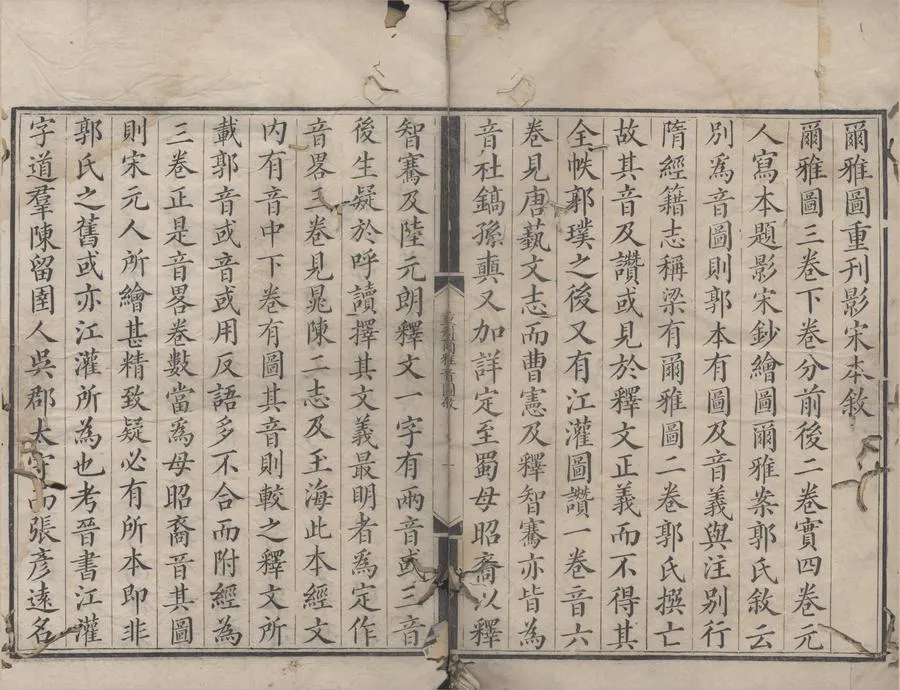 爾雅圖重刊影宋本敘
爾雅圖三卷下卷分前後二卷實四卷元
人寫本題影宋鈔繪圖爾雅案郭氏敘云
別為音圖則郭本有圖及音義與注別行
隋經籍志稱梁有爾雅圖二卷郭氏撰亡
故其音及讚或見於釋文正義而不得其
全帙郭璞之後又有江灌圖讚一卷音六
卷見唐藝文志而曹憲及釋智騫亦皆為
音杜鎬孫奭又加詳定至蜀毋昭裔以釋
智騫及陸元朗釋文一字有兩音或三音
後生疑於呼讀擇其文義最明者為定作
音畧三卷見晁陳二志及玉海此本經文
內有音中下卷有圖其音則較之釋文所
載郭音或音或用反語多不合而附經為
三卷正是音畧卷數當為毋昭裔音其圖
則宋元人所繪甚精致疑必有所本即非
郭氏之舊或亦江灌所為也考晉書江灌
字道羣陳留圉人吳郡太守而張彥遠名